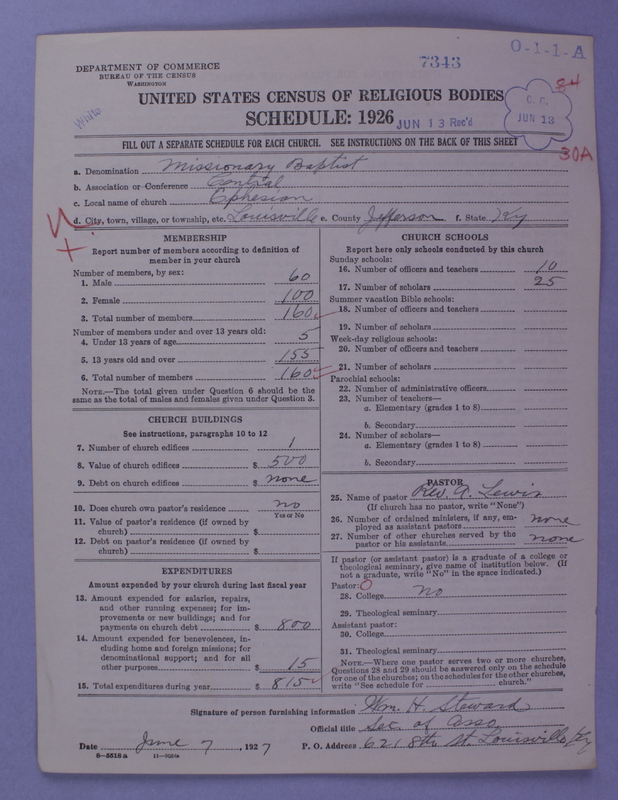 O-1-1-A
7343
DEPARTMENT OF COMMERCE
BUREAU OF THE CENSUS
WASHINGTON
84
White
UNITED STATES CENSUS OF RELIGIOUS BODIES
C. C.
JUN 13
SCHEDULE: 1926 JUN 13 Rec'd
FILL OUT A SEPARATE SCHEDULE FOR EACH CHURCH. SEE INSTRUCTIONS ON THE BACK OF THIS SHEET
30A
a. Denomination Missionary Baptist
b. Association or Conference Central
c. Local name of church Ephesian
d. City, town, village, or township, etc. Louisville e. County Jefferson f. State Ky
MEMBERSHIP
Report number of members according to definition of
member in your church
Number of members, by sex:
1. Male 60
2. Female 100
3. Total number of members 160
Number of members under and over 13 years old:
4. Under 13 years of age 5
5. 13 years old and over 155
6. Total number of members 160
NOTE.—The total given under Question 6 should be the
same as the total of males and females given under Question 3.
CHURCH BUILDINGS
See instructions, paragraphs 10 to 12
7. Number of church edifices 1
8. Value of church edifices $ 500
9. Debt on church edifices $ none
10. Does church own pastor's residence no
Yes or No
11. Value of pastor's residence (if owned by
church) $
12. Debt on pastor's residence (if owned by
church) $
EXPENDITURES
Amount expended by your church during last fiscal year
13. Amount expended for salaries, repairs,
and other running expenses; for im-
provements or new buildings; and for
payments on church debt $ 800
14. Amount expended for benevolences, in-
cluding home and foreign missions; for
denominational support; and for all
other purposes $ 15
15. Total expenditures during year $ 815
CHURCH SCHOOLS
Report here only schools conducted by this church
Sunday schools:
16. Number of officers and teachers 10
17. Number of scholars 25
Summer vacation Bible schools:
18. Number of officers and teachers
19. Number of scholars
Week-day religious schools:
20. Number of officers and teachers
21. Number of scholars
Parochial schools:
22. Number of administrative officers
23. Number of teachers—
a. Elementary (grades 1 to 8)
b. Secondary
24. Number of scholars—
a. Elementary (grades 1 to 8)
b. Secondary
PASTOR
25. Name of pastor Rev. A. Lewis
(If church has no pastor, write "None")
26. Number of ordained ministers, if any, em-
ployed as assistant pastors none
27. Number of other churches served by the
pastor or his assistants none
If pastor (or assistant pastor) is a graduate of a college or
theological seminary, give name of institution below. (If
not a graduate, write "No" in the space indicated.)
Pastor: O
28. College no
29. Theological seminary
Assistant pastor:
30. College
31. Theological seminary
NOTE.—Where one pastor serves two or more churches,
Questions 28 and 29 should be answered only on the schedule
for one of the churches; on the schedules for the other churches,
write "See schedule for church."
Signature of person furnishing information Wm. H. Steward
Official title Sec. of Asso.
Date June 7, 1927 P. O. Address 621 8th St. Louisville, Ky